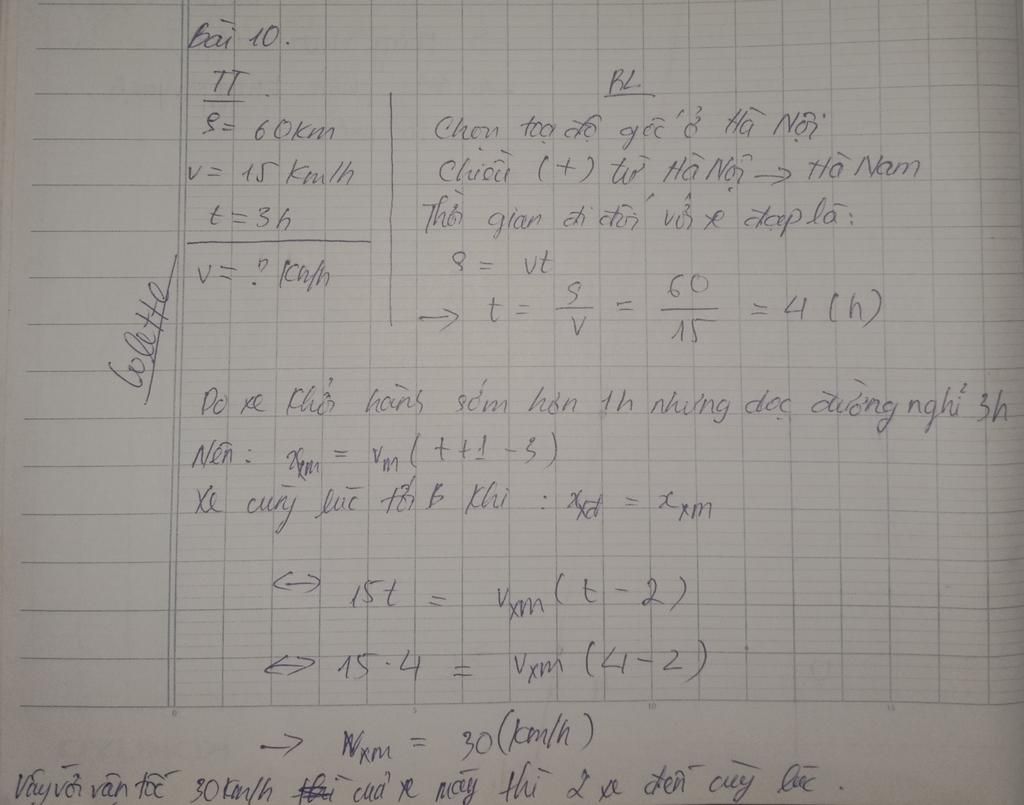 Bài 10.
TT
S = 60km
v = 15 km/h
t = 3h
v = ? km/h
BL
Chọn toạ độ gốc ở Hà Nội
Chiều (+) từ Hà Nội → Hà Nam
Thời gian đi đối với xe đạp là:
S = vt
→ t = S/v = 60/15 = 4 (h)
Colette
Do xe khởi hành sớm hơn 1h nhưng dọc đường nghỉ 3h
Nên: x_xm = v_m (t + 1 - 3)
Xe cùng lúc tới B khi: x_xđ = x_xm
<-> 15t = v_xm (t - 2)
<-> 15 · 4 = v_xm (4 - 2)
→ v_xm = 30 (km/h)
Vậy với vận tốc 30km/h của xe máy thì 2 xe đến cùng lúc.
0 5 10 15